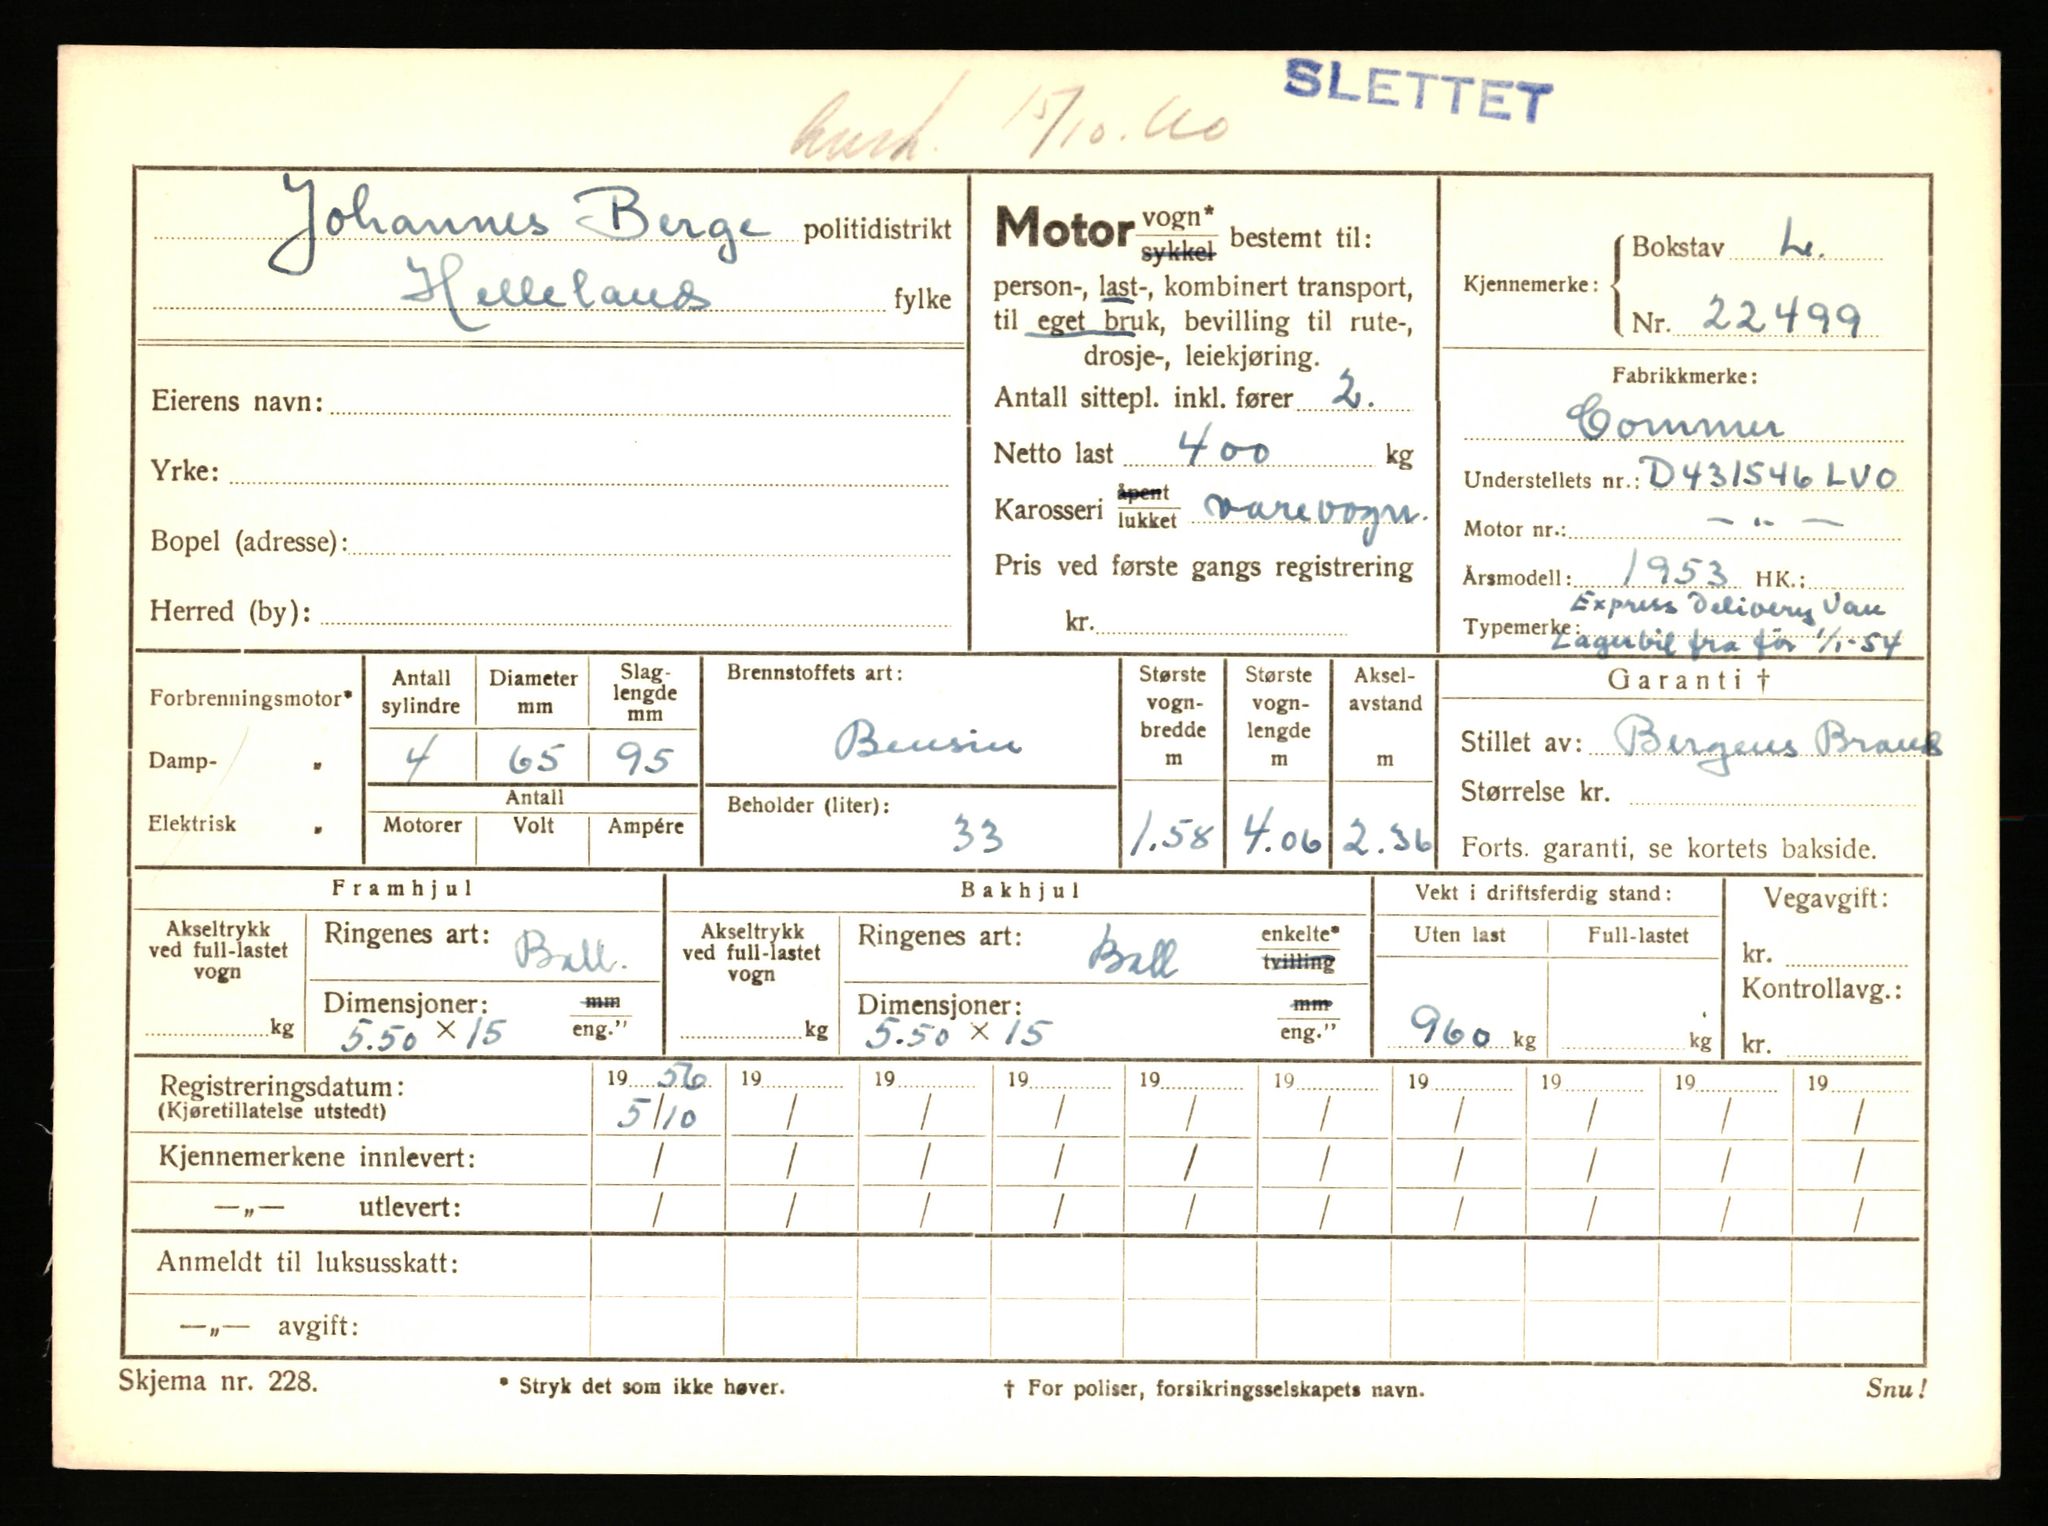 SLETTET
15/10.60
Johannes Berge politidistrikt
Helleland fylke
Eierens navn:
Yrke:
Bopel (adresse):
Herred (by):
Motor vogn* sykkel bestemt til:
person-, last-, kombinert transport,
til eget bruk, bevilling til rute-,
drosje-, leiekjøring.
Antall sittepl. inkl. fører 2.
Netto last 400 kg
Karosseri åpent lukket varevogn.
Pris ved første gangs registrering
kr.
Kjennemerke: Bokstav L.
Nr. 22499
Fabrikkmerke:
Commer
Understellets nr.: D431546 LVO
Motor nr.: — „ —
Årsmodell: 1953 HK.:
Express Delivery Van
Typemerke:
Lagerbil fra før 1/1-54
Forbrenningsmotor*
Damp- „
Elektrisk „
Antall sylindre
Diameter mm
Slag-lengde mm
4 65 95
Antall
Motorer Volt Ampére
Brennstoffets art:
Bensin
Beholder (liter):
33
Største vogn-bredde m
1.58
Største vogn-lengde m
4.06
Aksel-avstand m
2.36
Garanti †
Stillet av: Bergens Brand
Størrelse kr.
Forts. garanti, se kortets bakside.
Framhjul
Akseltrykk ved full-lastet vogn
kg
Ringenes art: Ball.
Dimensjoner: mm
5.50 × 15 eng."
Bakhjul
Akseltrykk ved full-lastet vogn
kg
Ringenes art: Ball enkelte* tvilling
Dimensjoner: mm
5.50 × 15 eng."
Vekt i driftsferdig stand:
Uten last Full-lastet
960 kg kg
Vegavgift:
kr.
Kontrollavg.:
kr.
Registreringsdatum: 19 56 19 19 19 19 19 19 19 19 19
(Kjøretillatelse utstedt) 5/10 / / / / / / / / /
Kjennemerkene innlevert: / / / / / / / / / /
—„— utlevert: / / / / / / / / / /
Anmeldt til luksusskatt:
—„— avgift:
Skjema nr. 228. * Stryk det som ikke høver. † For poliser, forsikringsselskapets navn. Snu!